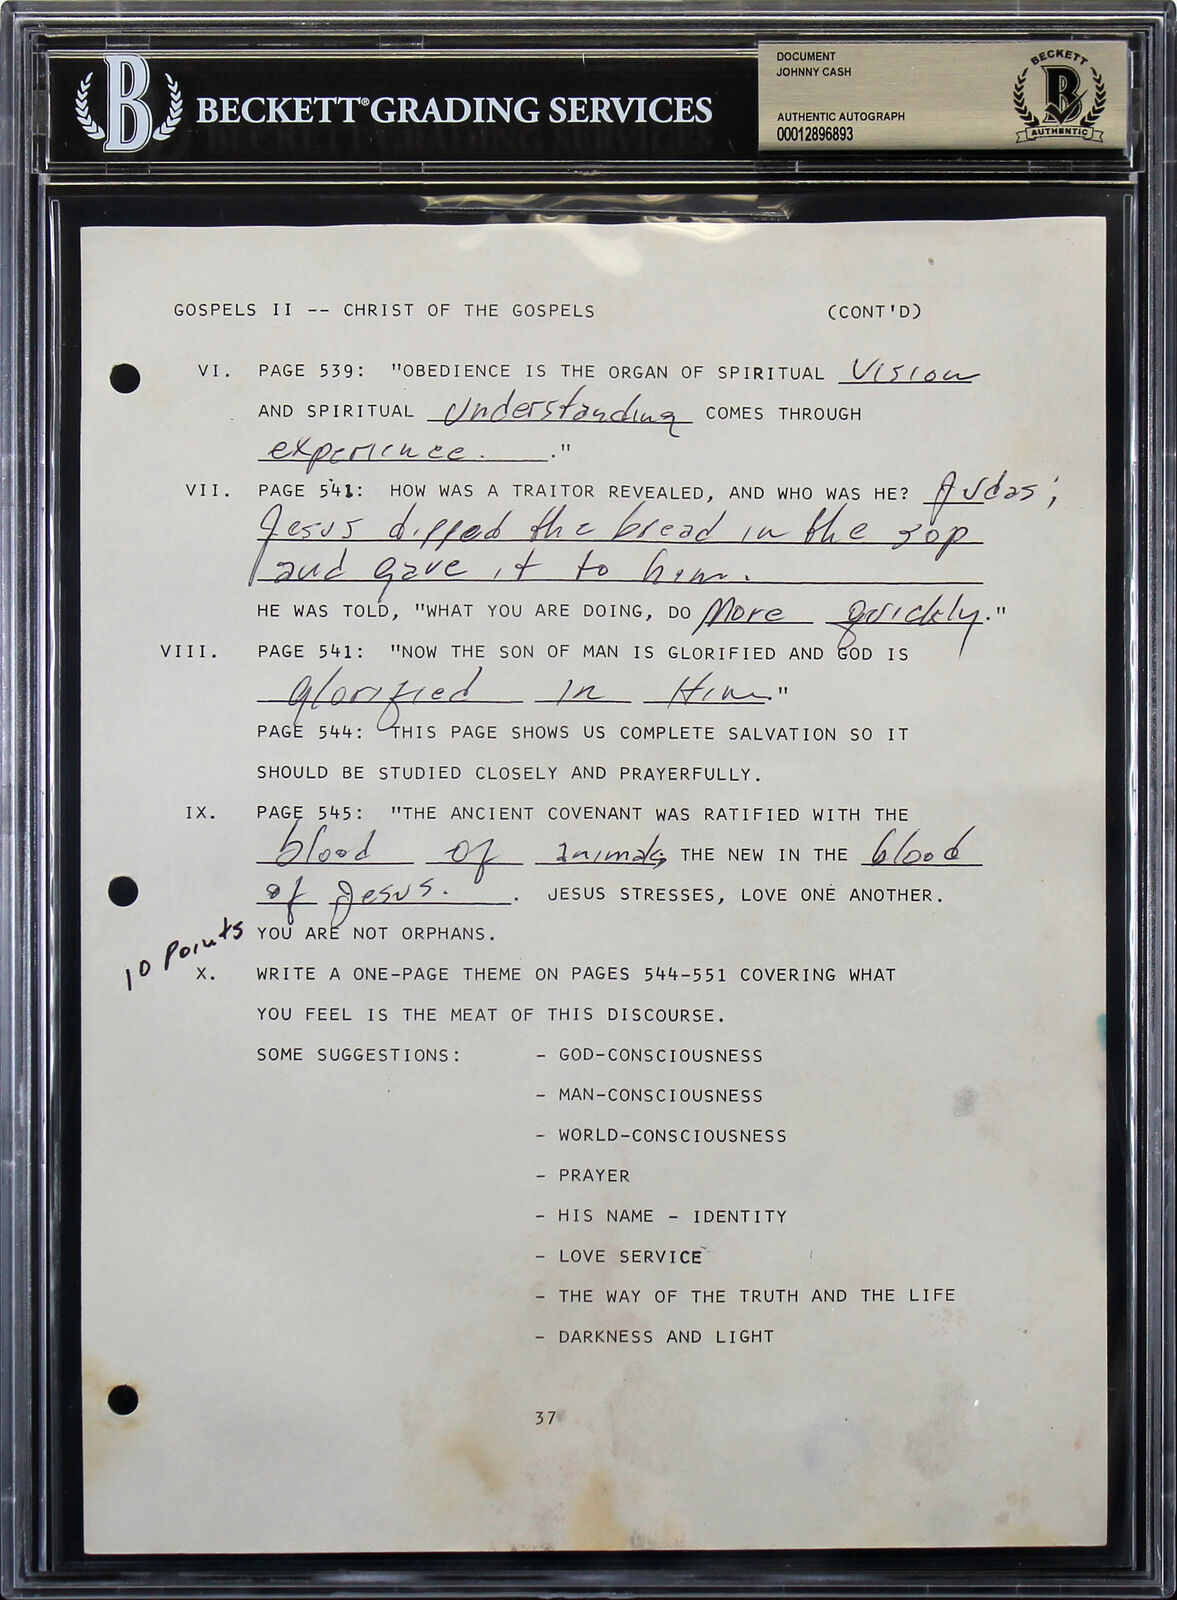 B BECKETT® GRADING SERVICES
DOCUMENT
JOHNNY CASH
AUTHENTIC AUTOGRAPH
00012896893
BECKETT
B
AUTHENTIC
GOSPELS II -- CHRIST OF THE GOSPELS (CONT'D)
VI. PAGE 539: "OBEDIENCE IS THE ORGAN OF SPIRITUAL Vision
AND SPIRITUAL Understanding COMES THROUGH
experience. ."
VII. PAGE 541: HOW WAS A TRAITOR REVEALED, AND WHO WAS HE? Judas;
Jesus dipped the bread in the sop
and gave it to him.
HE WAS TOLD, "WHAT YOU ARE DOING, DO More quickly."
VIII. PAGE 541: "NOW THE SON OF MAN IS GLORIFIED AND GOD IS
glorified in Him."
PAGE 544: THIS PAGE SHOWS US COMPLETE SALVATION SO IT
SHOULD BE STUDIED CLOSELY AND PRAYERFULLY.
IX. PAGE 545: "THE ANCIENT COVENANT WAS RATIFIED WITH THE
blood of animals, THE NEW IN THE blood
of Jesus. . JESUS STRESSES, LOVE ONE ANOTHER.
YOU ARE NOT ORPHANS.
10 Points
X. WRITE A ONE-PAGE THEME ON PAGES 544-551 COVERING WHAT
YOU FEEL IS THE MEAT OF THIS DISCOURSE.
SOME SUGGESTIONS: - GOD-CONSCIOUSNESS
- MAN-CONSCIOUSNESS
- WORLD-CONSCIOUSNESS
- PRAYER
- HIS NAME - IDENTITY
- LOVE SERVICE
- THE WAY OF THE TRUTH AND THE LIFE
- DARKNESS AND LIGHT
37